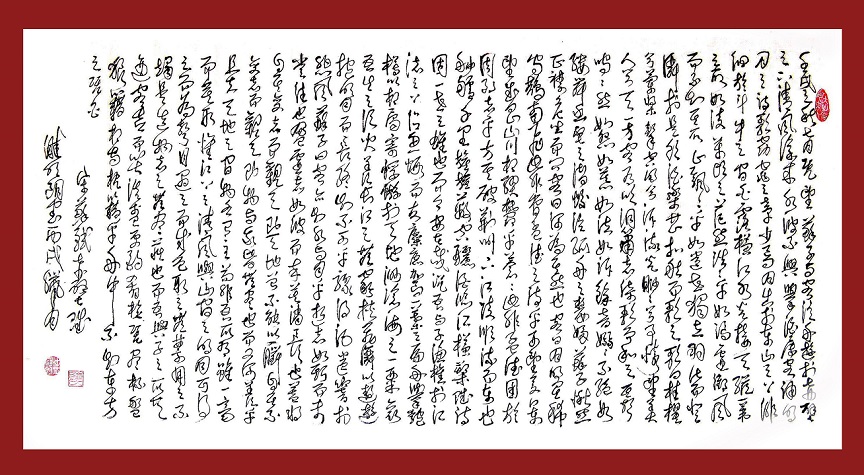 壬戌之秋七月既望蘇子與客泛舟遊於赤壁
之下清風徐來水波不興舉酒屬客誦明
月之詩歌窈窕之章少焉月出於東山之上徘
徊於斗牛之間白露橫江水光接天縱一葦
之所如凌萬頃之茫然浩浩乎如馮虛御風
而不知其所止飄飄乎如遺世獨立羽化而登
仙於是飲酒樂甚扣舷而歌之歌曰桂棹
兮蘭槳擊空明兮泝流光渺渺兮予懷望美
人兮天一方客有吹洞簫者倚歌而和之其聲
嗚嗚然如怨如慕如泣如訴餘音嫋嫋不絕如
縷舞幽壑之潛蛟泣孤舟之嫠婦蘇子愀然
正襟危坐而問客曰何為其然也客曰月明星稀
烏鵲南飛此非曹孟德之詩乎西望夏口東
望武昌山川相繆鬱乎蒼蒼此非孟德之困於
周郎者乎方其破荊州下江陵順流而東也
舳艫千里旌旗蔽空釃酒臨江橫槊賦詩
固一世之雄也而今安在哉況吾與子漁樵於江
渚之上侶魚蝦而友麋鹿駕一葉之扁舟舉匏
樽以相屬寄蜉蝣於天地渺滄海之一粟哀
吾生之須臾羨長江之無窮挾飛仙以遨遊
抱明月而長終知不可乎驟得託遺響於
悲風蘇子曰客亦知夫水與月乎逝者如斯而未
嘗往也盈虛者如彼而卒莫消長也蓋將
自其變者而觀之則天地曾不能以一瞬自其不
變者而觀之則物與我皆無盡也而又何羨乎
且夫天地之間物各有主苟非吾之所有雖一毫
而莫取惟江上之清風與山間之明月耳得
之而為聲目遇之而成色取之無禁用之不
竭是造物者之無盡藏也而吾與子之所共
適客喜而笑洗盞更酌肴核既盡杯盤
狼籍相與枕藉乎舟中不知東方
之既白
宋蘇軾赤壁賦
書丙戌月